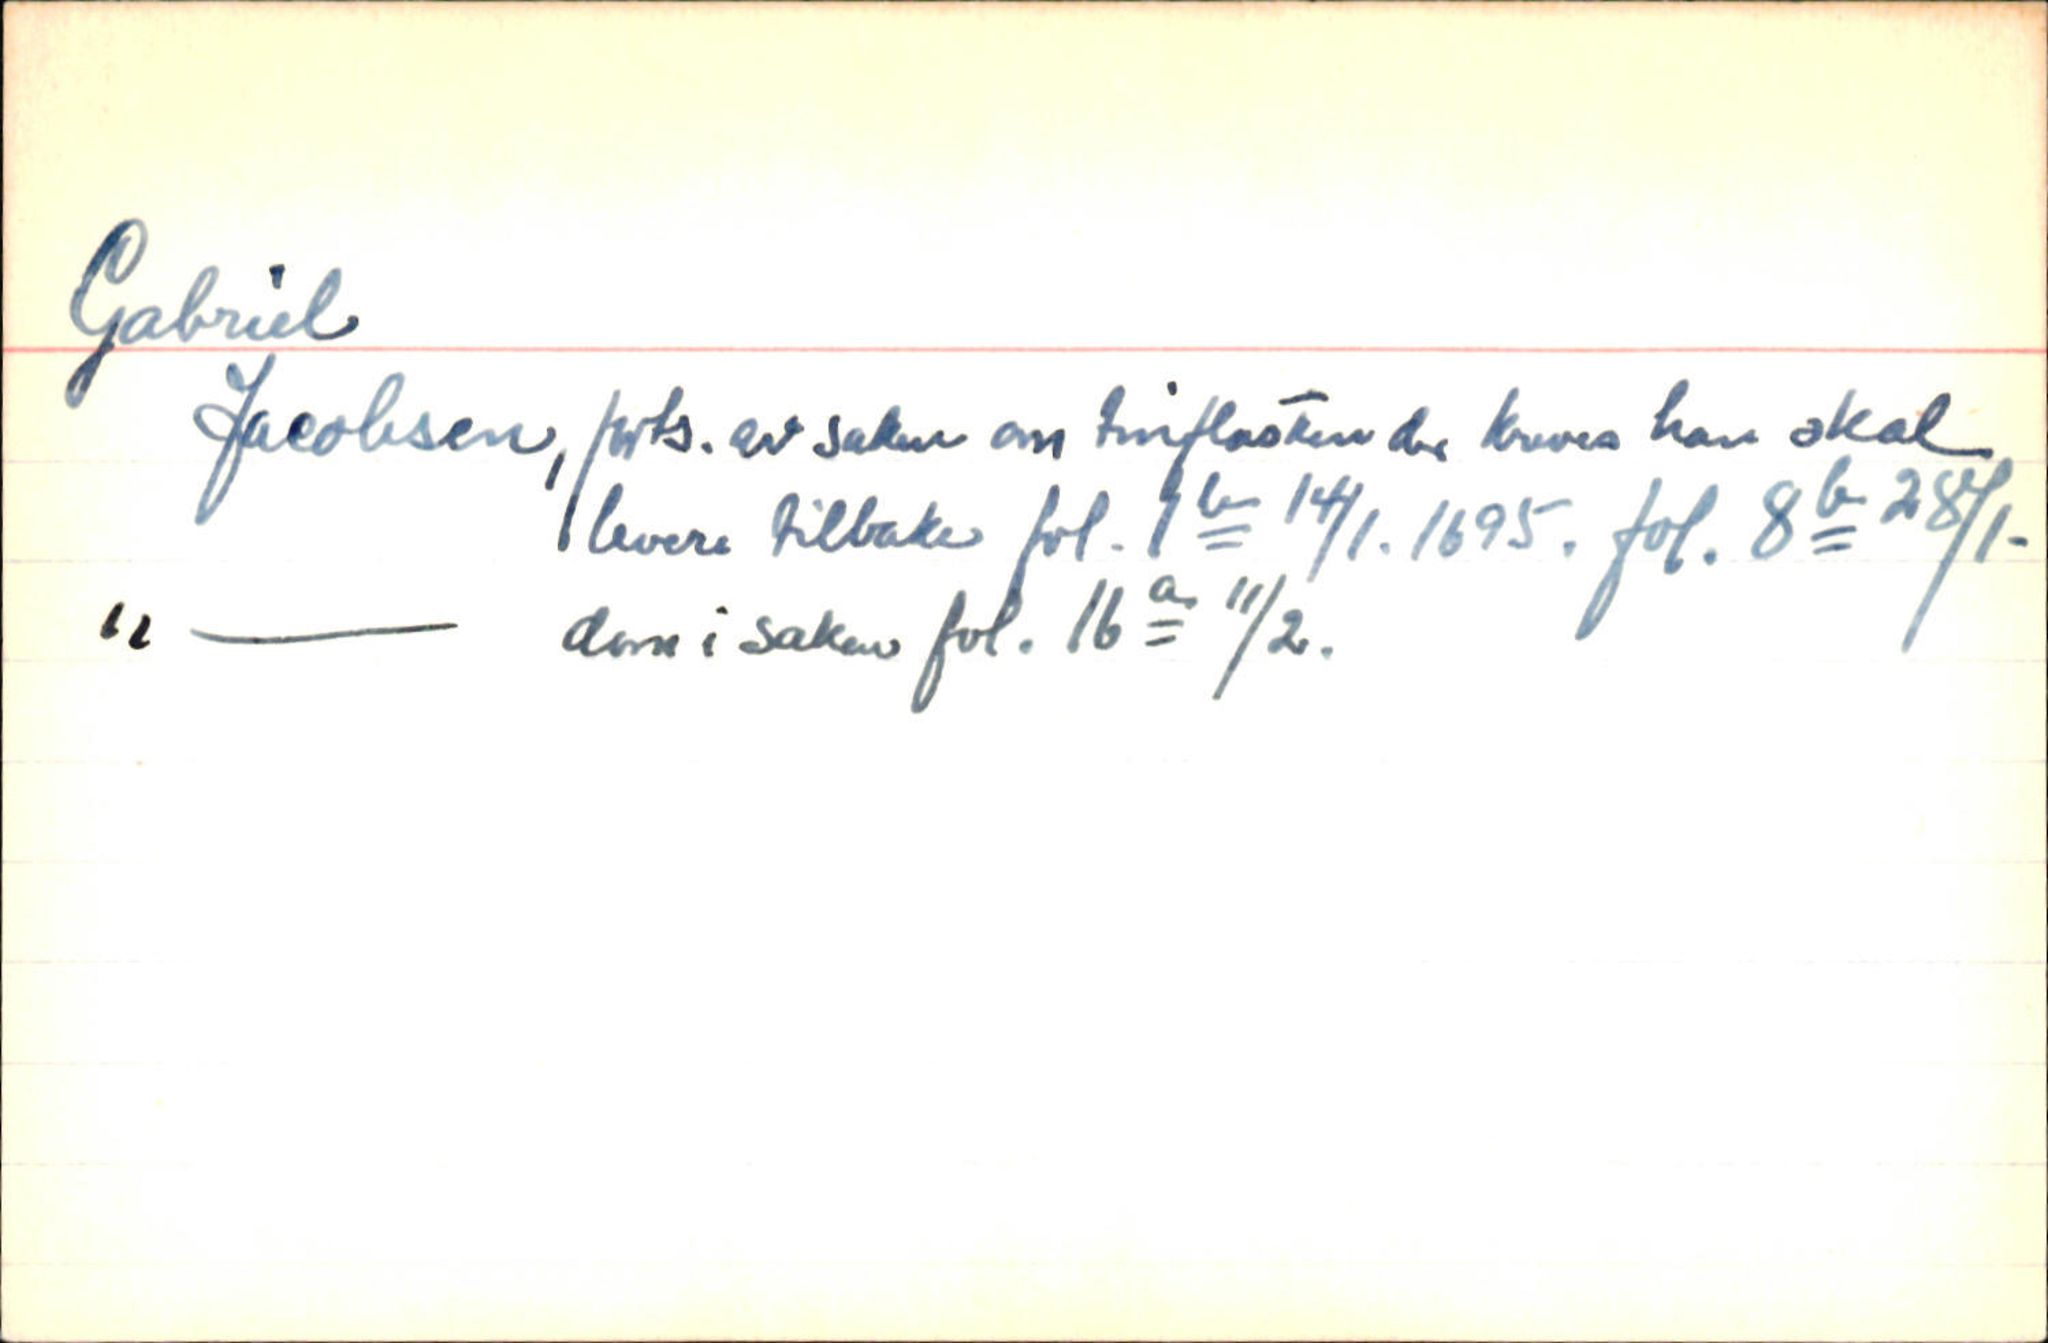 Gabriel
Jacobsen, forts. av saken om tinflasken der kreves han skal
levere tilbake fol. 1 b 14/1. 1695. fol. 8 b 28/1-
" — dom i saken fol. 16 a 11/2.